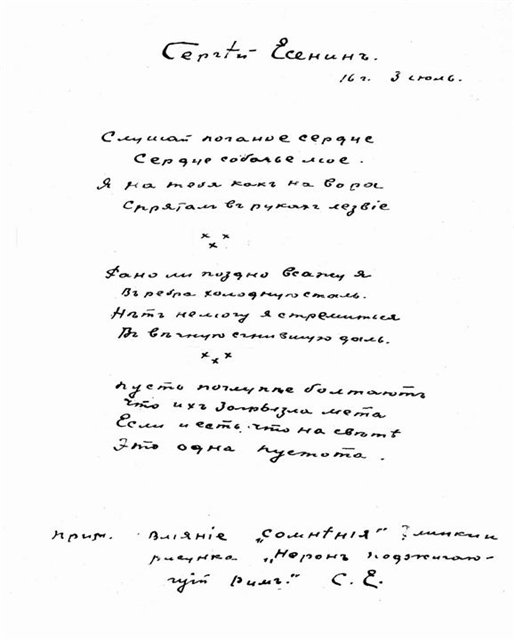 Сергѣй Есенинъ.
16 г. 3 июль.
Слушай поганое сердце
Сердце собачье мое.
Я на тебя какъ на вора
Спряталъ въ рукахъ лезвіе
× × ×
Рано ли поздно всажу я
Въ ребра холодную сталь.
Нѣтъ немогу я стремиться
Въ вѣчную сгнившую даль.
× × ×
Пусть поглупѣе болтаютъ
Что ихъ загрызла мѣта
Если и есть что на свѣтѣ
Это одна пустота.
Прим. Вліяніе „Сомнѣнія“ Глинки и
рисунка „Неронъ поджигаю-
щій Римъ.“ С. Е.